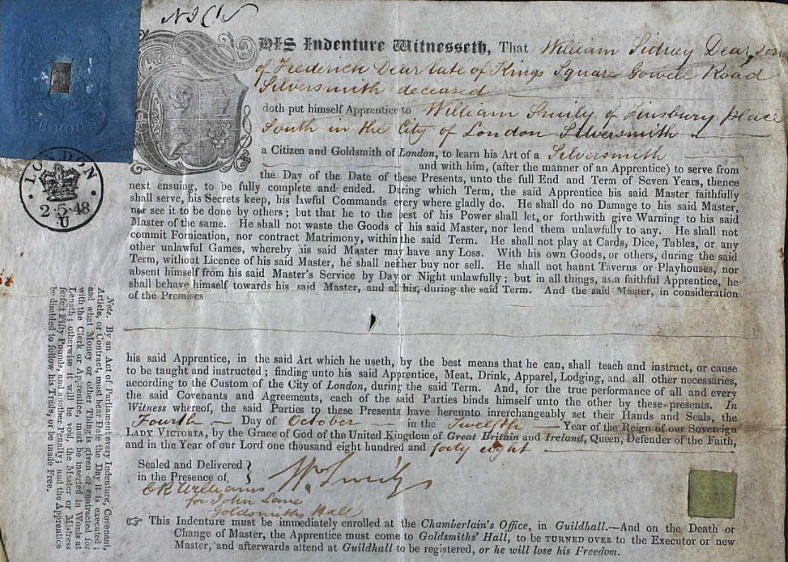 THIS Indenture Witnesseth, That William Sidney Dear, son
of Frederick Dear late of Kings Square Goswell Road
Silversmith deceased
doth put himself Apprentice to William Smily of Finsbury place
South in the City of London Silversmith
a Citizen and Goldsmith of London, to learn his Art of a Silversmith
and with him, (after the manner of an Apprentice) to serve from
the Day of the Date of these Presents, unto the full End and Term of Seven Years, thence
next ensuing, to be fully complete and ended. During which Term, the said Apprentice his said Master faithfully
shall serve, his Secrets keep, his lawful Commands every where gladly do. He shall do no Damage to his said Master,
nor see it to be done by others; but that he to the best of his Power shall let, or forthwith give Warning to his said
Master of the same. He shall not waste the Goods of his said Master, nor lend them unlawfully to any. He shall not
commit Fornication, nor contract Matrimony, within the said Term. He shall not play at Cards, Dice, Tables, or any
other unlawful Games, whereby his said Master may have any Loss. With his own Goods, or others, during the said
Term, without Licence of his said Master, he shall neither buy nor sell. He shall not haunt Taverns or Playhouses, nor
absent himself from his said Master's Service by Day or Night unlawfully; but in all things, as a faithful Apprentice, he
shall behave himself towards his said Master, and all his, during the said Term. And the said Master, in consideration
of the Premises
his said Apprentice, in the said Art which he useth, by the best means that he can, shall teach and instruct, or cause
to be taught and instructed; finding unto his said Apprentice, Meat, Drink, Apparel, Lodging, and all other necessaries,
according to the Custom of the City of London, during the said Term. And, for the true performance of all and every
the said Covenants and Agreements, each of the said Parties binds himself unto the other by these presents. In
Witness whereof, the said Parties to these Presents have hereunto interchangeably set their Hands and Seals, the
Fourth Day of October in the Twelfth Year of the Reign of our Sovereign
LADY VICTORIA, by the Grace of God of the United Kingdom of Great Britain and Ireland, Queen, Defender of the Faith,
and in the Year of our Lord one thousand eight hundred and forty eight
Sealed and Delivered
in the Presence of
Wm Smily
E R Williams
for John Lane
Goldsmiths Hall
☞ This Indenture must be immediately enrolled at the Chamberlain's Office, in Guildhall.—And on the Death or
Change of Master, the Apprentice must come to Goldsmiths' Hall, to be TURNED OVER to the Executor or new
Master, and afterwards attend at Guildhall to be registered, or he will lose his Freedom.
LONDON
2·5·48
U
Note. By an Act of Parliament every Indenture, Covenant,
Article, or Contract, must bear Date the Day it is executed;
and what Money or other Thing is given or contracted for
with the Clerk or Apprentice, must be inserted in Words at
Length; otherwise it will be void, the Master or Mistress
forfeit Fifty Pounds, and another Penalty; and the Apprentice
be disabled to follow his Trade, or be made Free.